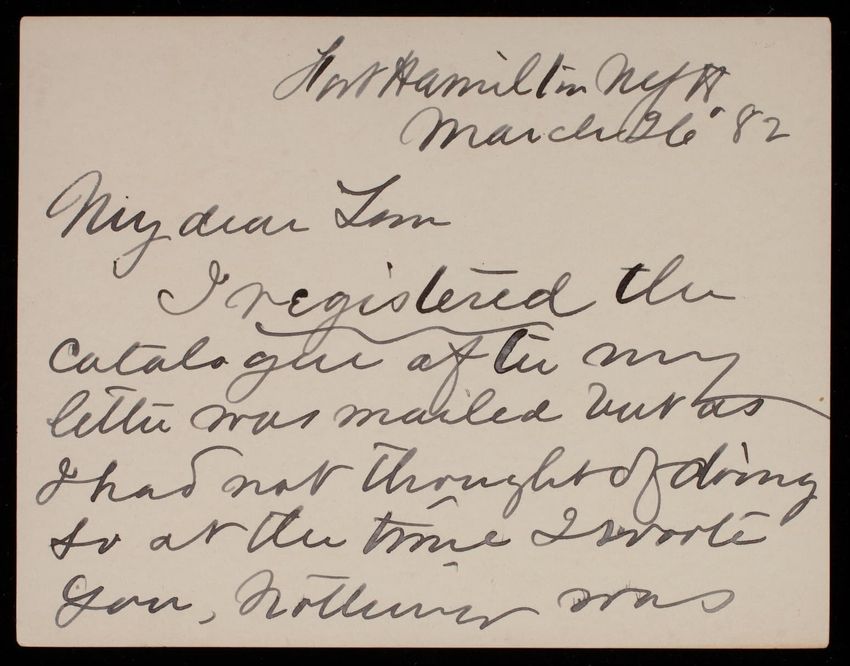 Fort Hamilton NYH
March 26" 82
My dear Tom
I registered the
Catalogue after my
letter was mailed but as
I had not thought of doing
so at the time I wrote
you, Nothing was